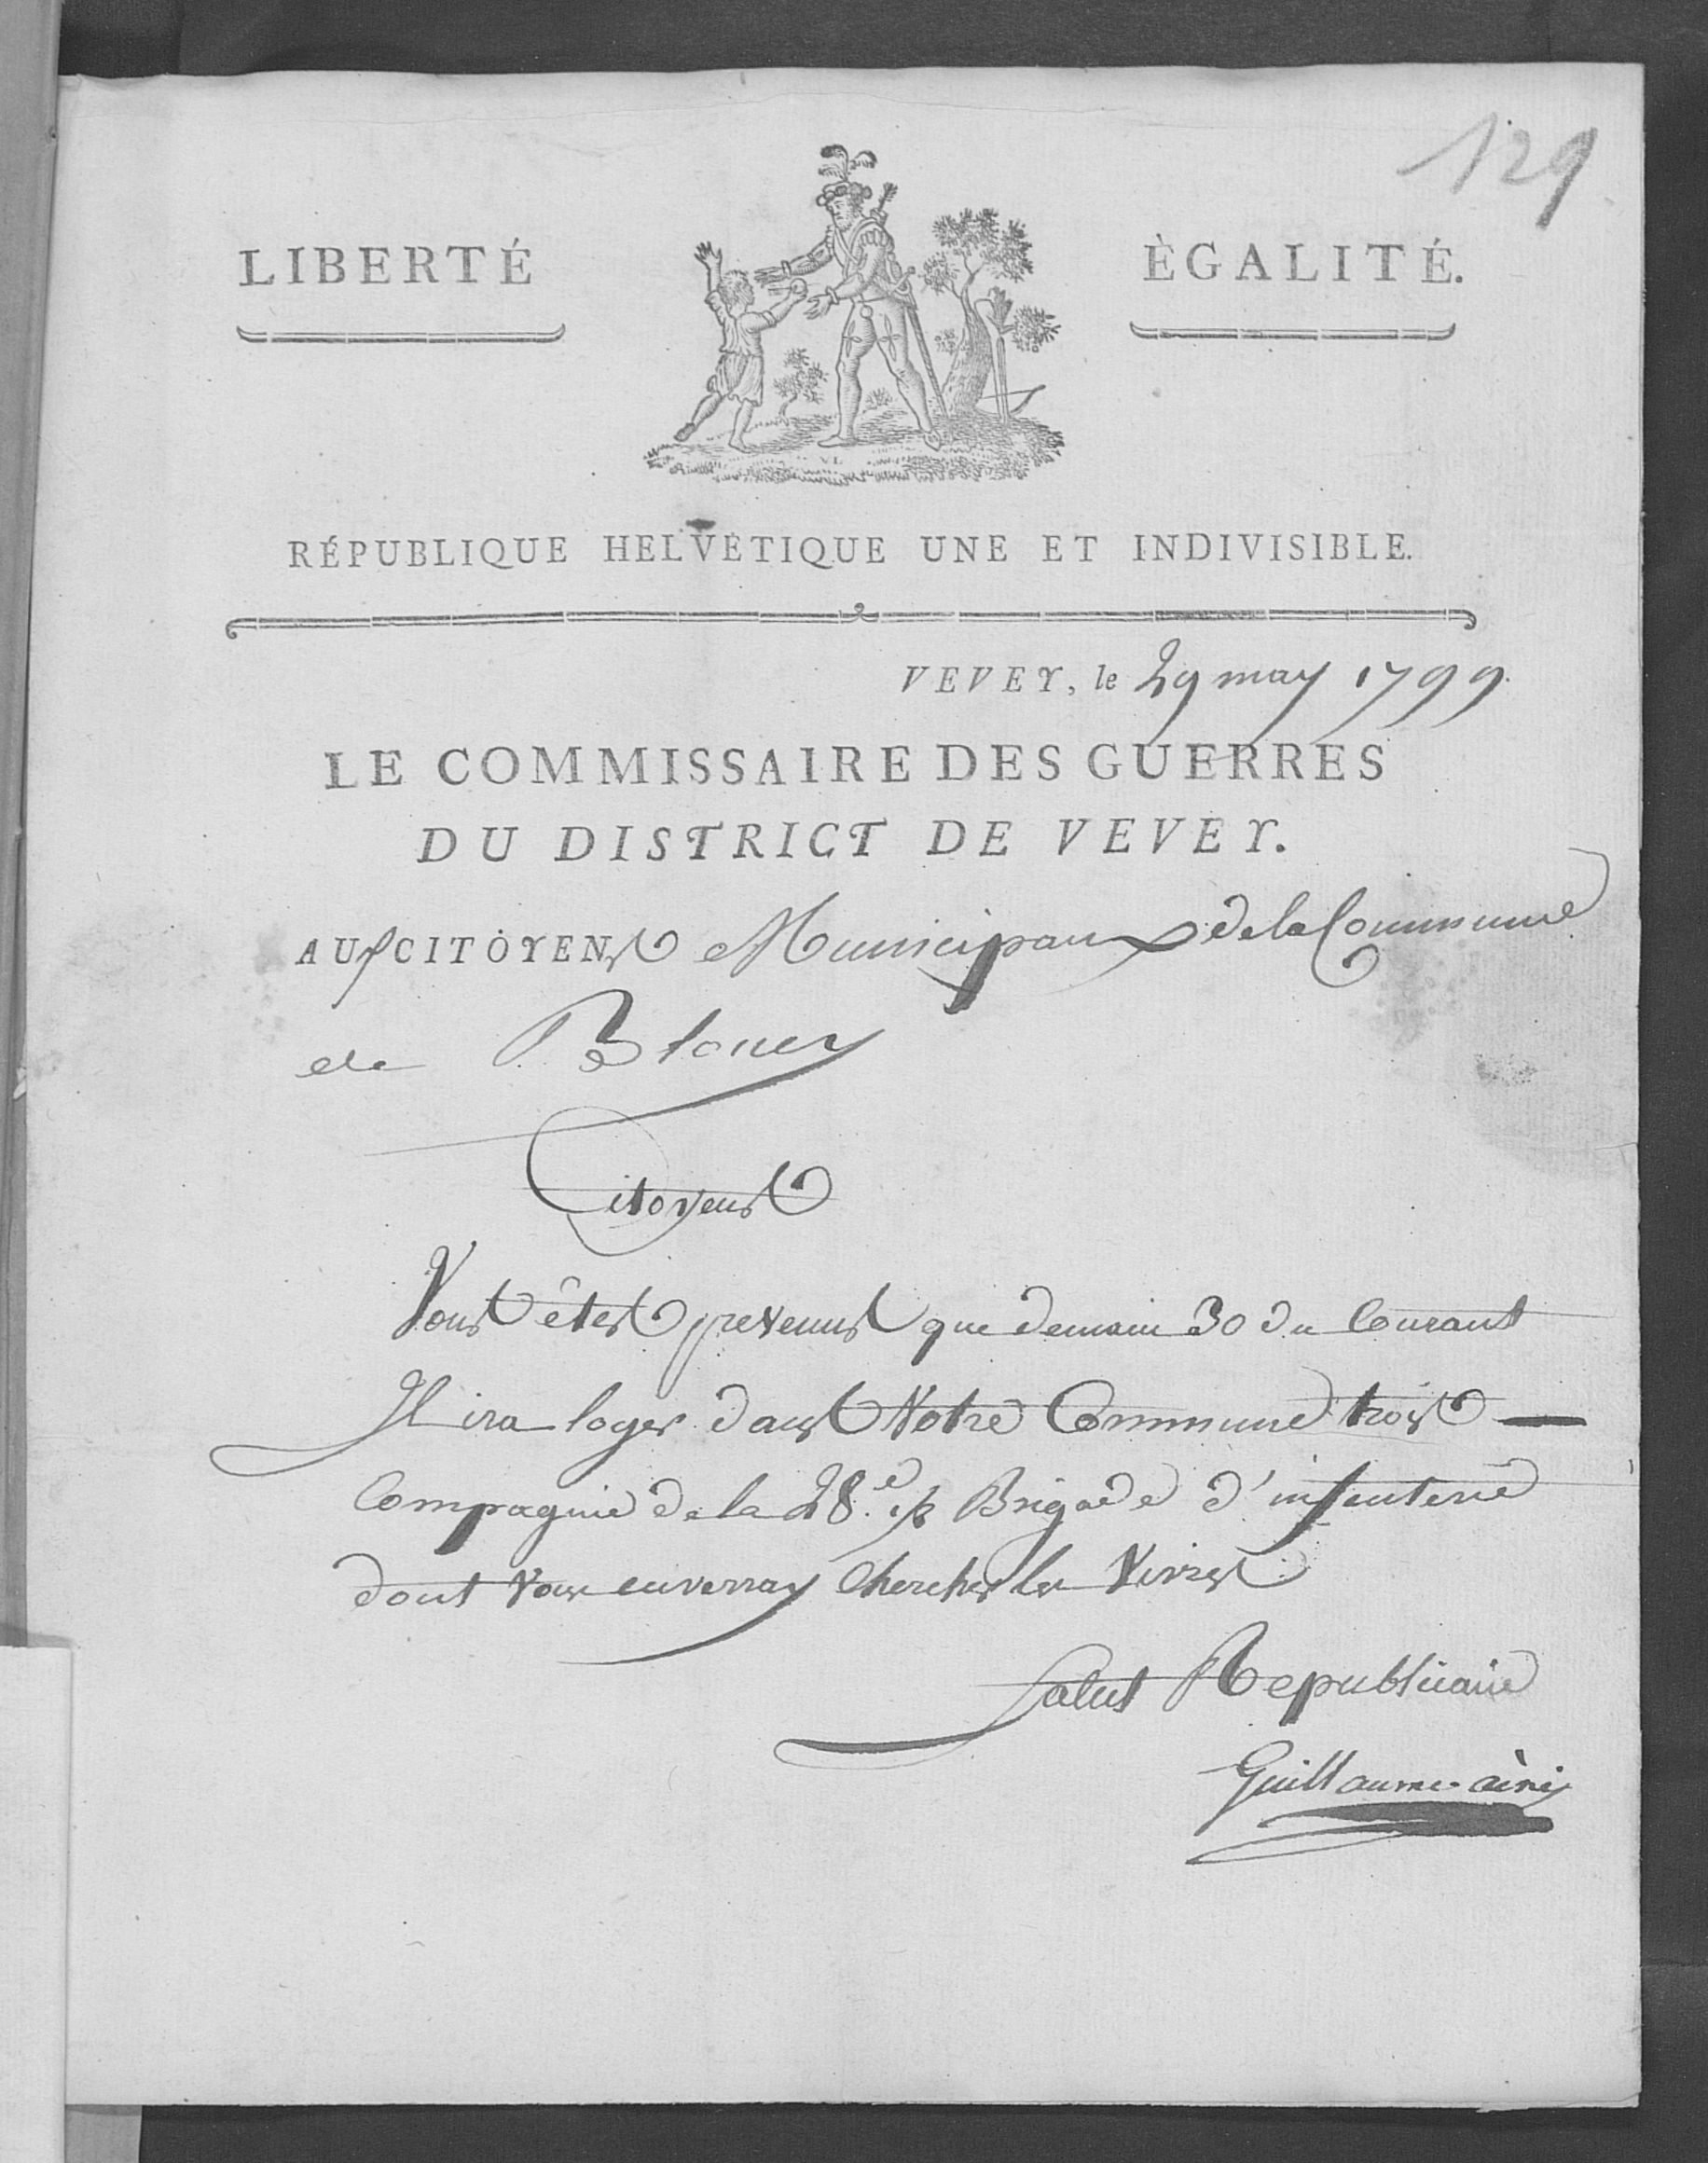 129
LIBERTÉ
ÈGALITÉ.
RÉPUBLIQUE HELVÉTIQUE UNE ET INDIVISIBLE.
VEVEY, le 29 may 1799.
LE COMMISSAIRE DES GUERRES
DU DISTRICT DE VEVEY.
AUx CITOYENs Municipaux de la Commune
de Bloney
Citoyens
Vous êtes prevenus que demain 30 du Courant
Il ira loger dans Votre Commune trois
Compagnie de la 28.e Brigade d'infanterie
dont vous enverray Chercher les Vivres
Salut Republicain
Guillaume-ainé